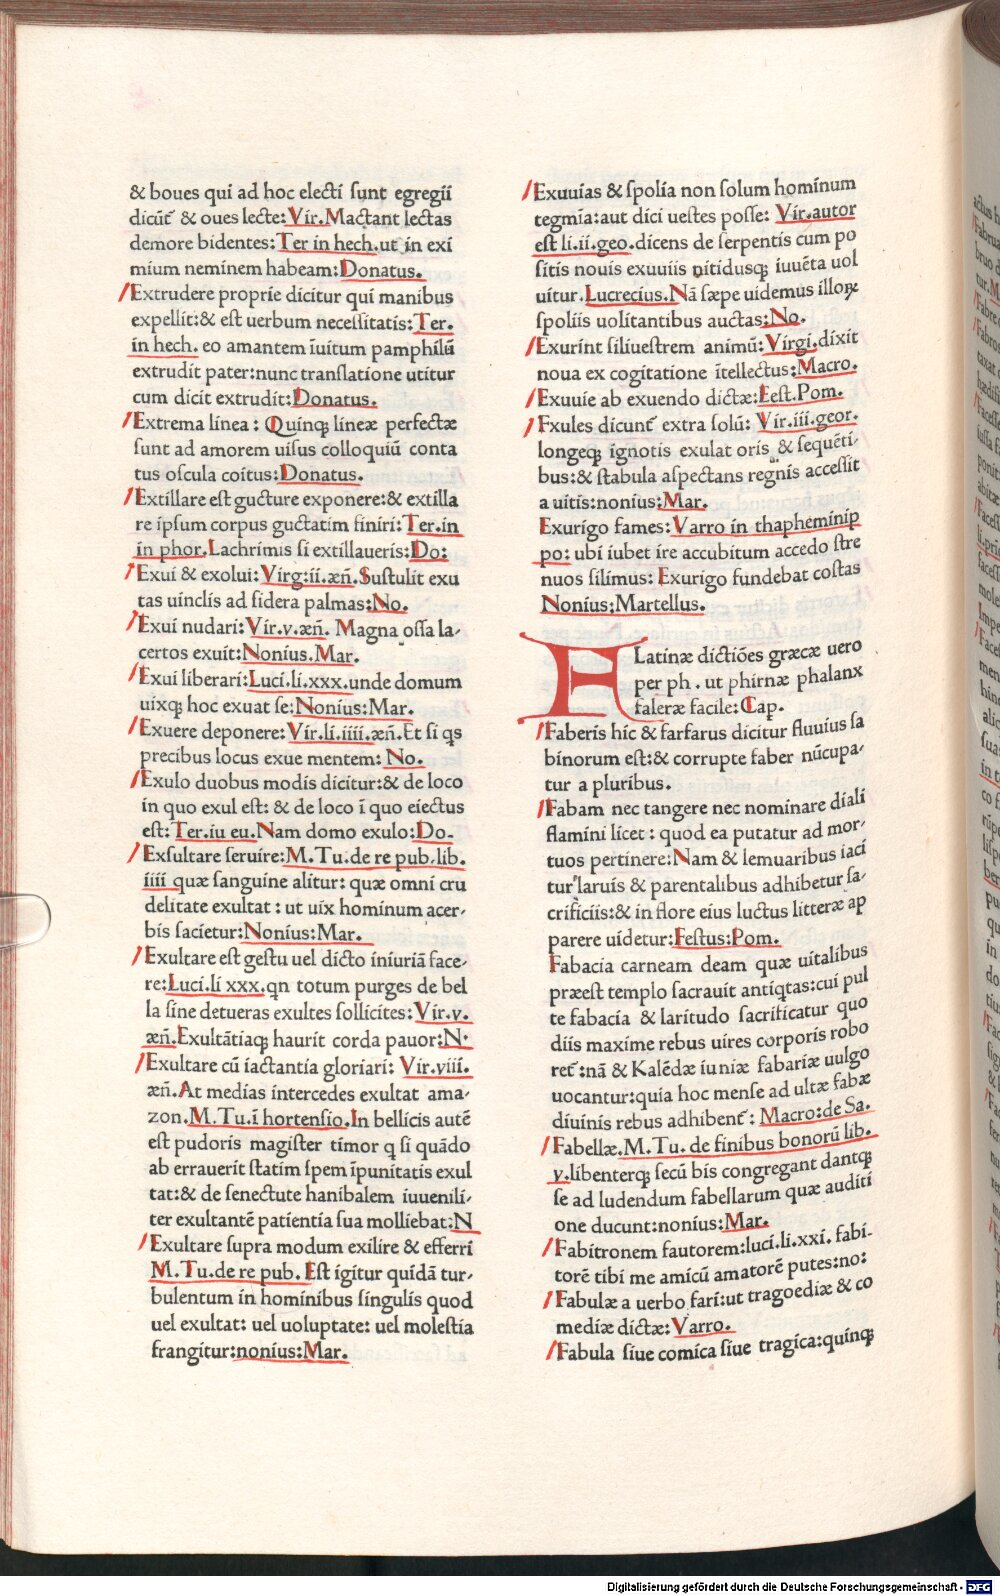 & boues qui ad hoc electi sunt egregii
dicūt̃ & oues lecte: Vir. Mactant lectas
demore bidentes: Ter in hech. ut in exi
mium neminem habeam: Donatus.
Extrudere proprie dicitur qui manibus
expellit: & est uerbum necessitatis: Ter.
in hech. eo amantem īuitum pamphilū
extrudit pater: nunc translatione utitur
cum dicit extrudit: Donatus.
Extrema linea: Quinq; lineæ perfectæ
sunt ad amorem uisus colloquiū conta
tus oscula coitus: Donatus.
Extillare est gucture exponere: & extilla
re ipsum corpus guctatim finiri: Ter. in
in phor. Lachrimis si extillaueris: Do:
Exui & exolui: Virg: ii. æñ. Sustulit exu
tas uinclis ad sidera palmas: No.
Exui nudari: Vir. v. æñ. Magna ossa la-
certos exuit: Nonius. Mar.
Exui liberari: Luci. li. xxx. unde domum
uixq; hoc exuat se: Nonius: Mar.
Exuere deponere: Vir. li. iiii. æñ. Et si qs
precibus locus exue mentem: No.
Exulo duobus modis dicitur: & de loco
in quo exul est: & de loco ī quo eiectus
est: Ter. iu eu. Nam domo exulo: Do.
Exsultare seruire: M. Tu. de re pub. lib.
iiii quæ sanguine alitur: quæ omni cru
delitate exultat: ut uix hominum acer-
bis facietur: Nonius: Mar.
Exultare est gestu uel dicto iniuriā face-
re: Luci. li xxx. qn totum purges de bel
la sine detueras exultes sollicites: Vir. v.
æñ. Exultātiaq; haurit corda pauor: N.
Exultare cū iactantia gloriari: Vir. viii.
æñ. At medias intercedes exultat ama-
zon. M. Tu. ī hortensio. In bellicis autē
est pudoris magister timor q si quādo
ab errauerit statim spem īpunitatis exul
tat: & de senectute hanibalem iuuenili-
ter exultantē patientia sua molliebat: N
Exultare supra modum exilire & efferri
M. Tu. de re pub. Est igitur quidā tur-
bulentum in hominibus singulis quod
uel exultat: uel uoluptate: uel molestia
frangitur: nonius: Mar.
Exuuias & spolia non solum hominum
tegmia: aut dici uestes posse: Vir. autor
est li. ii. geo. dicens de serpentis cum po
sitis nouis exuuiis nitidusq; iuuēta uol
uitur. Lucrecius. Nā sæpe uidemus illoꝝ
spoliis uolitantibus auctas: No.
Exurint siluestrem animū: Virgi. dixit
noua ex cogitatione ītellectus: Macro.
Exuuie ab exuendo dictæ: Fest. Pom.
Fxules dicunt̃ extra solū: Vir. iii. geor.
longeq; ignotis exulat oris & sequēti-
bus: & stabula aspectans regnis accessit
a uitis: nonius: Mar.
Exurigo fames: Varro in thapheminip
po: ubi iubet ire accubitum accedo stre
nuos silimus: Exurigo fundebat costas
Nonius: Martellus.
F Latinæ dictiões græcæ uero
per ph. ut phirnæ phalanx
faleræ facile: Cap.
Faberis hic & farfarus dicitur fluuius sa
binorum est: & corrupte faber nūcupa-
tur a pluribus.
Fabam nec tangere nec nominare diali
flamini licet: quod ea putatur ad mor-
tuos pertinere: Nam & lemuaribus iaci
tur laruis & parentalibus adhibetur sa-
crificiis: & in flore eius luctus litteræ ap
parere uidetur: Festus: Pom.
Fabacia carneam deam quæ uitalibus
præest templo sacrauit antiqtas: cui pul
te fabacia & laritudo sacrificatur quo
diis maxime rebus uires corporis robo
ret̃: nā & Kalēdæ iuniæ fabariæ uulgo
uocantur: quia hoc mense ad ultæ fabæ
diuinis rebus adhibent̃: Macro: de Sa.
Fabellæ. M. Tu. de finibus bonorū lib.
v. libenterq; secū bis congregant dantq;
se ad ludendum fabellarum quæ auditi
one ducunt: nonius: Mar.
Fabitronem fautorem: luci. li. xxi. fabi-
torē tibi me amicū amatorē putes: no:
Fabulæ a uerbo fari: ut tragoediæ & co
mediæ dictæ: Varro.
Fabula siue comica siue tragica: quinq;
Digitalisierung gefördert durch die Deutsche Forschungsgemeinschaft - DFG